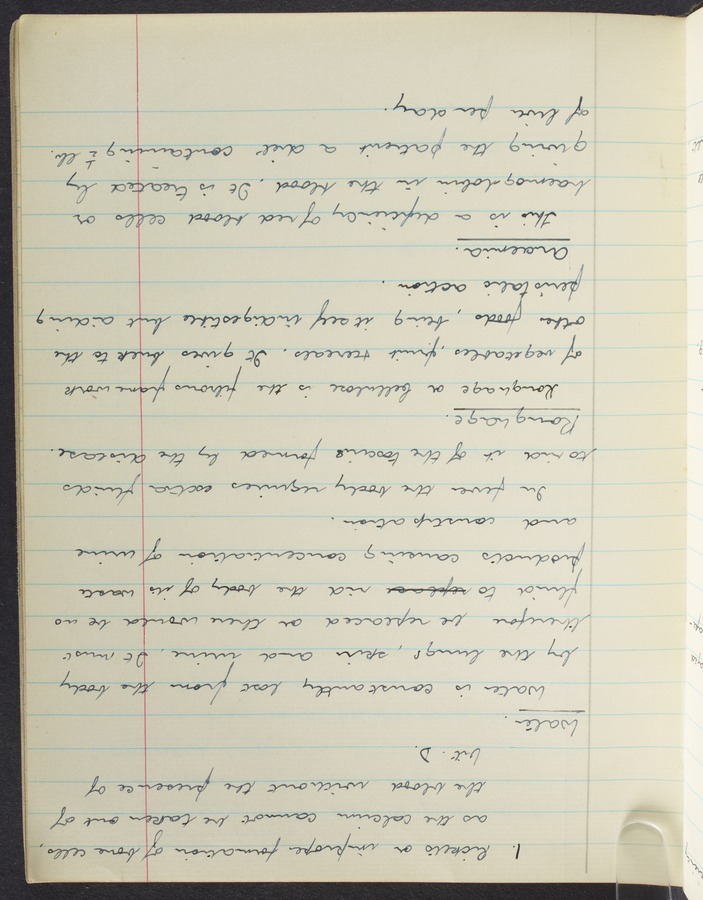 1. Rickets or improper formation of bone cells,
as the calcium cannot be taken out of
the blood without the presence of
Vit. D.
Water.
Water is constantly lost from the body
by the lungs, skin and urine. It must
therefore be replaced as there would be no
fluid to replace rid the body of its waste
products causing concentration of urine
and constipation.
In fever the body requires extra fluids
to rid it of the toxins formed by the disease.
Roughage.
Roughage or cellulose is the fibrous framework
of vegetables, fruit & cereals. It gives bulk to the
other foods, being itself indigestible but aiding
peristalic action.
Anaemia.
This is a deficiency of red blood cells or
haemoglobin in the blood. It is treated by
giving the patient a diet containing ½ lb.
of liver per day.